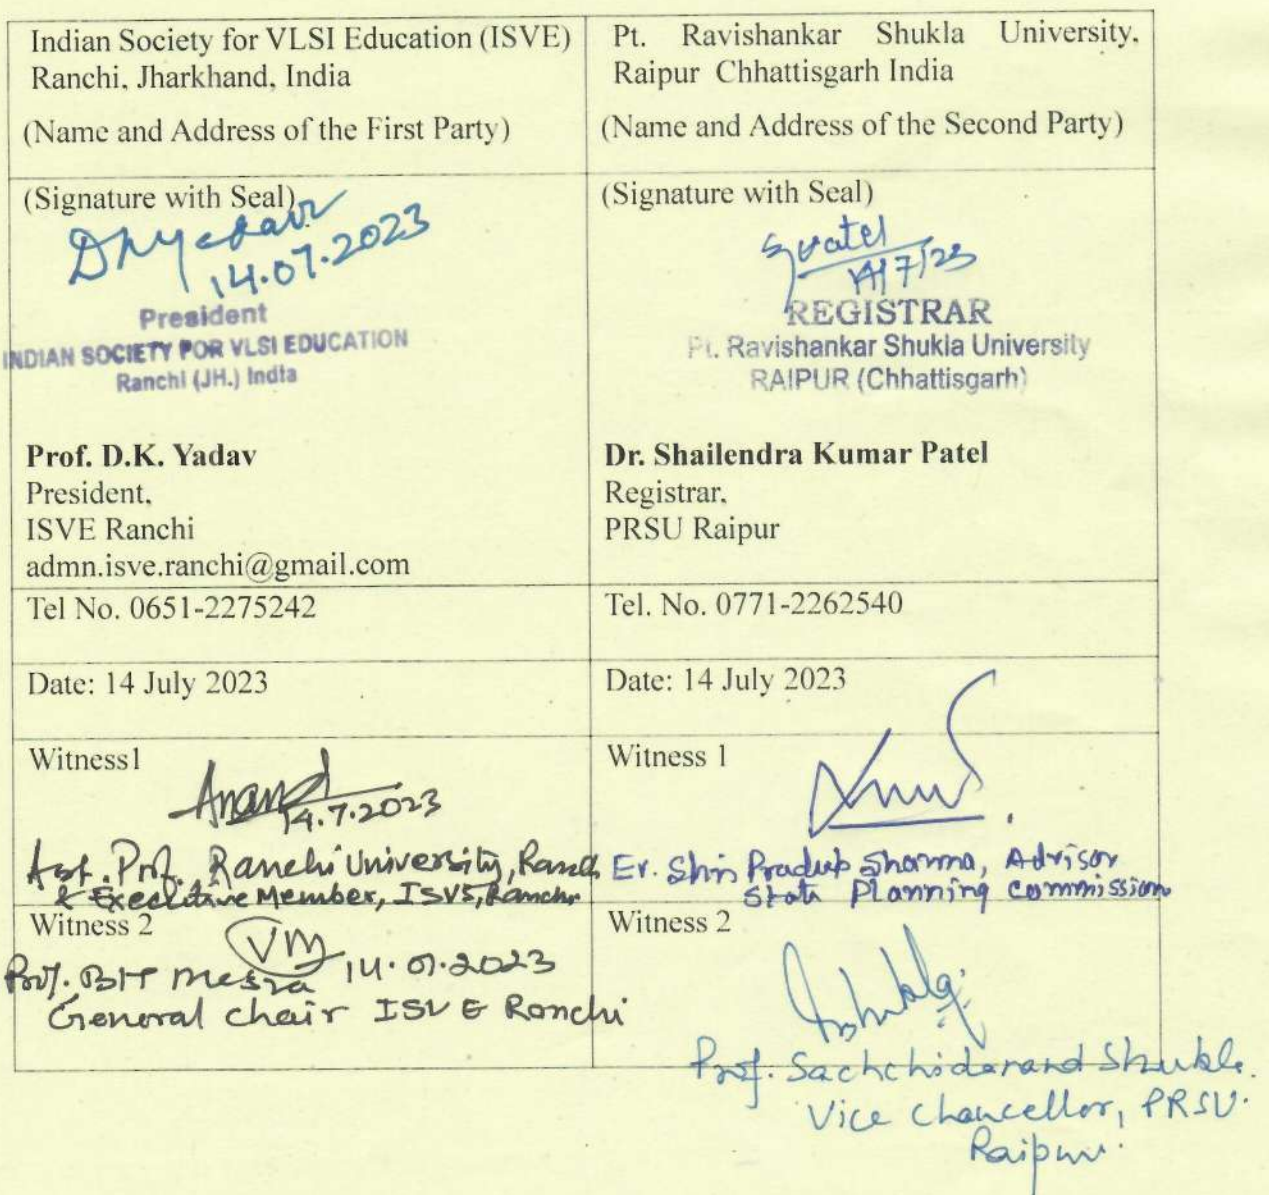 Indian Society for VLSI Education (ISVE)
Ranchi, Jharkhand, India
(Name and Address of the First Party)
Pt. Ravishankar Shukla University,
Raipur Chhattisgarh India
(Name and Address of the Second Party)
(Signature with Seal)
DKYadav
14.07.2023
President
INDIAN SOCIETY FOR VLSI EDUCATION
Ranchi (JH.) India
Prof. D.K. Yadav
President,
ISVE Ranchi
admn.isve.ranchi@gmail.com
(Signature with Seal)
14/7/23
REGISTRAR
Pt. Ravishankar Shukla University
RAIPUR (Chhattisgarh)
Dr. Shailendra Kumar Patel
Registrar,
PRSU Raipur
Tel No. 0651-2275242
Tel. No. 0771-2262540
Date: 14 July 2023
Date: 14 July 2023
Witness1
Anand
14.7.2023
Ast. Prof. Ranchi University, Ranchi
& Executive Member, ISVE, Ranchi
Witness 1
Er. Shri Pradeep Sharma, Advisor
State Planning commission
Witness 2
VM
14.07.2023
Prof. BIT Mesra
General Chair ISVE Ranchi
Witness 2
Prof. Sachchidanand Shukla
Vice Chancellor, PRSU.
Raipur.